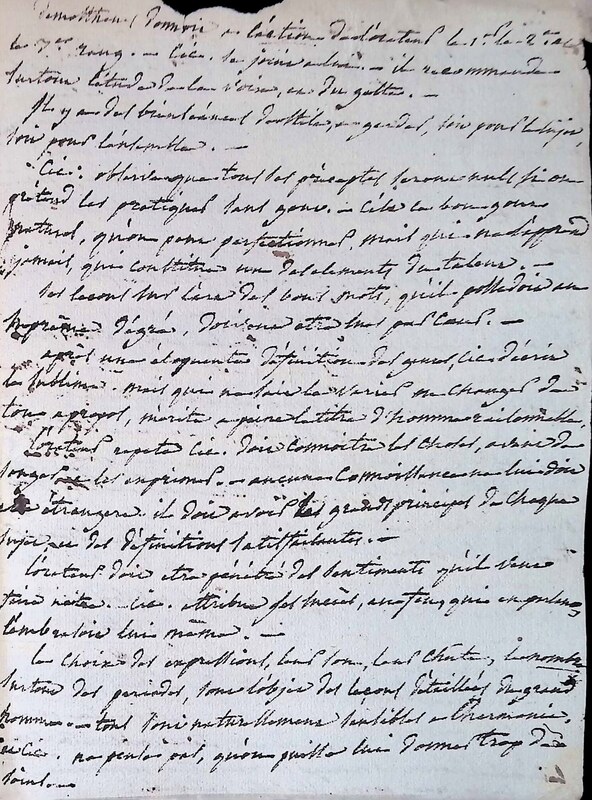 Demosthenes donnoit a l'action de l'orateur le 1er le 2e et
le 3eme rang. - Cic. se joint a lui. - il recommande
surtout l'étude de la voix, et du geste. -
Il y a des bienséances de stile, a garder, soit pour le sujet,
soit pour l'ensemble. -
Cic. observe que tous les préceptes seront nuls si on
prétend les pratiquer sans gout. - C'est ce bon gout
naturel, qu'on peut perfectionner, mais qui ne s'apprend
jamais, qui constitue un des elements du talent. -
Ses leçons sur l'art des bons mots, qu'il possedoit au
suprême dégré, doivent etre lues par tous. -
après une éloquente définition des genres, Cic. décrit
le sublime. mais qui ne sait le varier ne changer de
ton a propos, mérite a peine le titre d'homme raisonnable.
l'orateur repete Cic. doit connoitre les choses, avant de
songer a les exprimer. - aucune connoissance ne lui doit
etre étrangere. il doit avoir les grands principes de chaque
sujet, et des définitions satisfaisantes. -
l'orateur doit etre pénétré des sentiments qu'il veut
faire naitre. Cic. attribue ses succès, au feu, qui en parlant
l'embrasoit lui même. -
le choix des expressions, leur son, leur chute, le nombre
surtout des periodes, sont l'objet des leçons détaillées du grand
homme. - tous sont naturellement sensibles a l'harmonie,
et Cic. ne pense pas, qu'on puisse lui donner trop de
soins. -